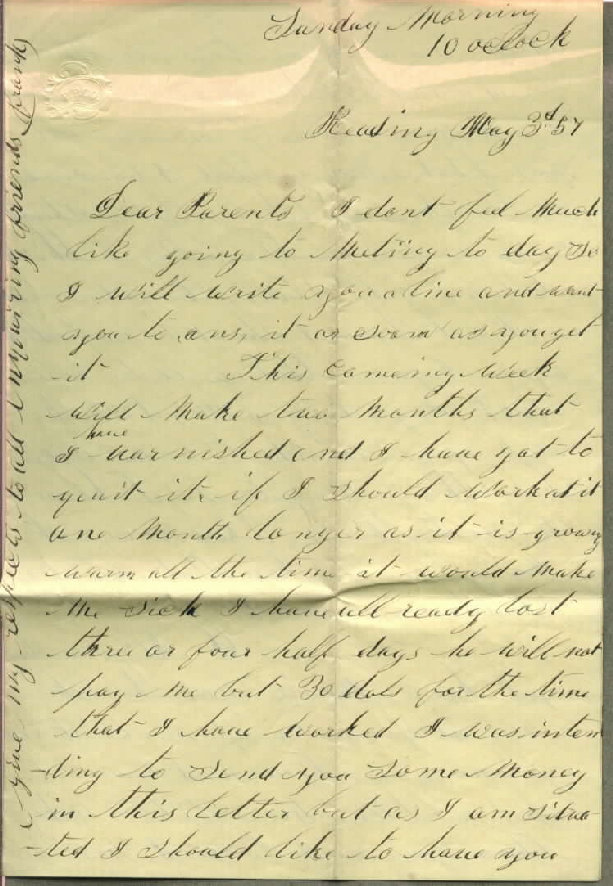 Sunday Morning
10 oclock
Reading May 3d 57
Dear Parents I dont feel Much
like going to Meting to day so
I will write you a line and want
you to ans, it as soom as you get
it This Comeing Week
will Make two Months that
have
I varnished and I have got to
quit it, if I should work at it
one Month longer as it is growing
warm all the time it would Make
Me sick I have all ready lost
three or four half days he will not
pay Me but 30 dols for the time
that I have worked I was inten
-ding to send you some Money
in this letter but as I am situa
-ted I should like to have you
give My respects to all enquiring friends Frank